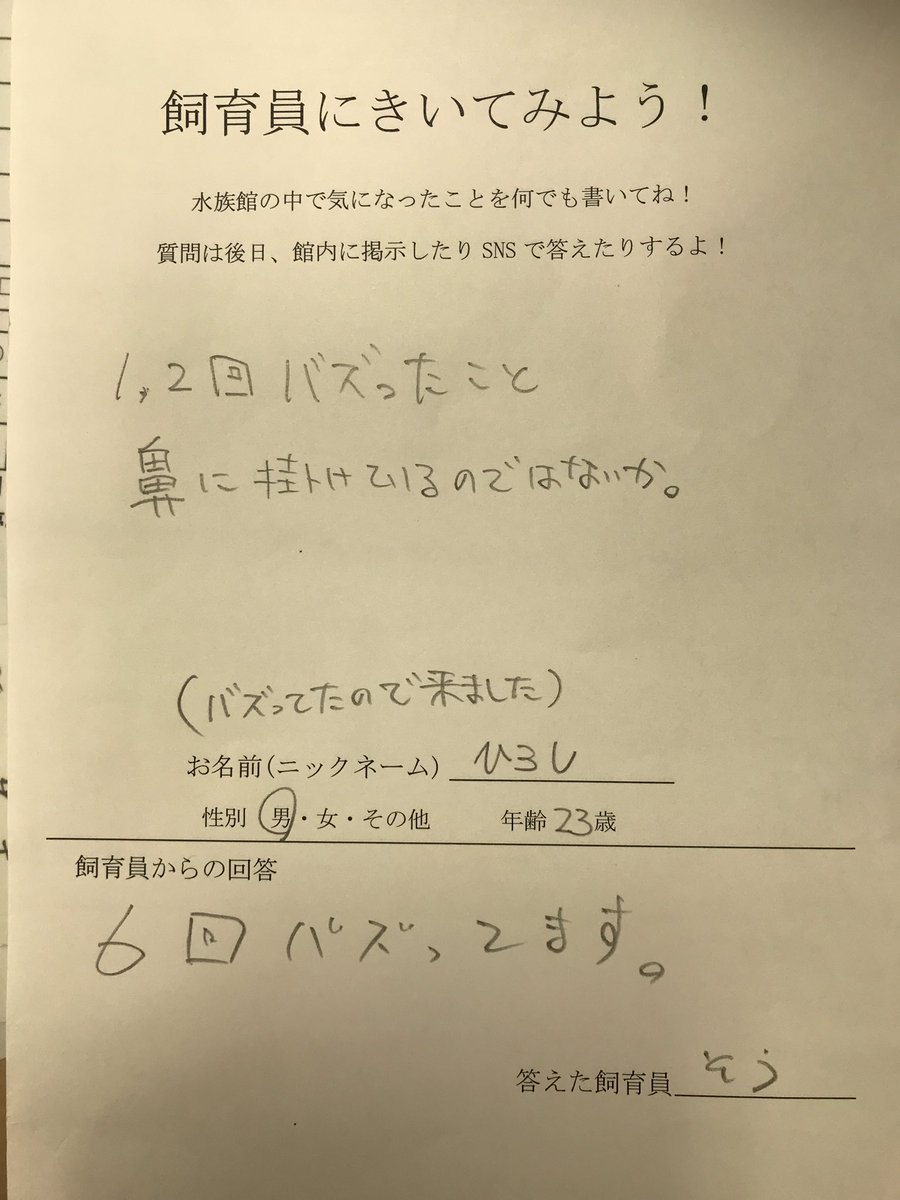 飼育員にきいてみよう！
水族館の中で気になったことを何でも書いてね！
質問は後日、館内に掲示したりSNSで答えたりするよ！
1,2回バズったこと
鼻に掛けているのではないか。
(バズってたので来ました)
お名前(ニックネーム) ひろし
性別 男・女・その他 年齢 23歳
飼育員からの回答
6回バズってます。
答えた飼育員 そう